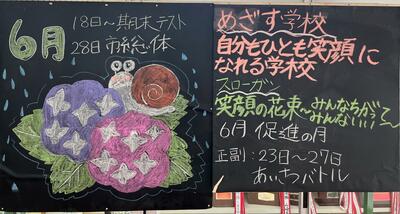 6月
18日〜期末テスト
28日 市総体
めざす学校
自分もひとも笑顔に
なれる学校
スローガン
笑顔の花束〜みんなちがって
みんないい!〜
6月 促進の月
正副:23日〜27日
あいさつバトル